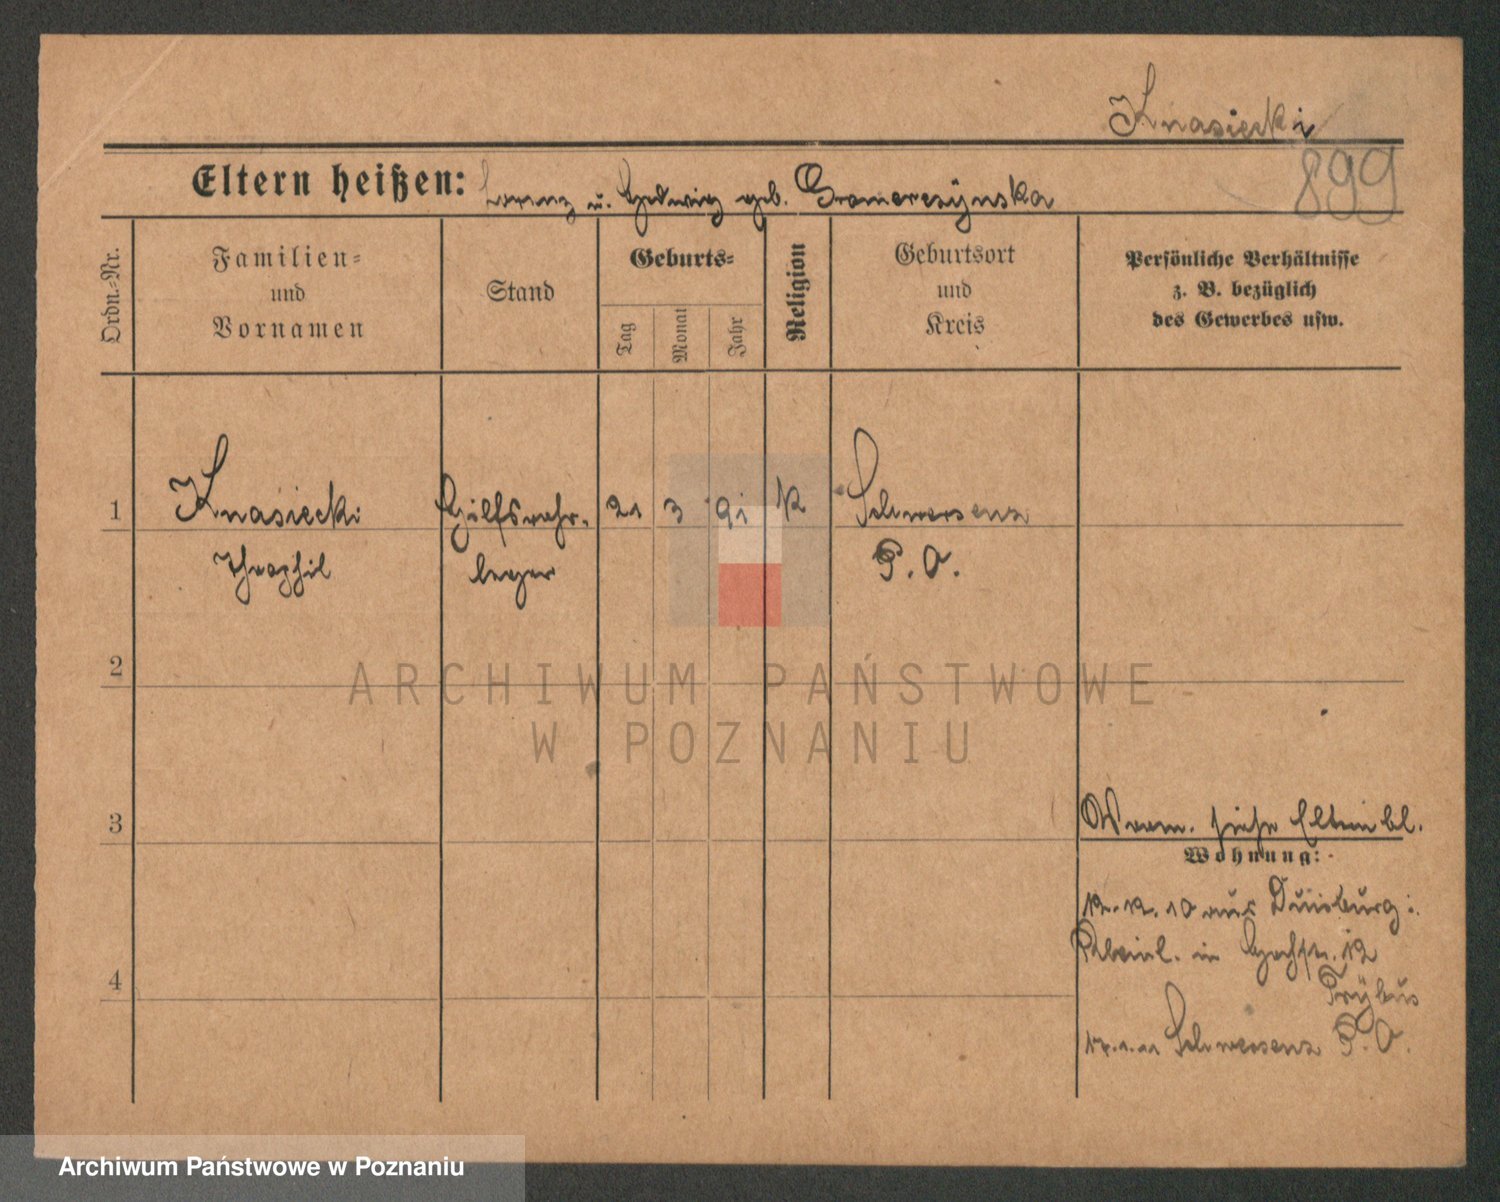 Knasiecki
899
Eltern heißen: Lorenz u. Hedwig geb.
Ordn.-Nr.
Familien-
und
Vornamen
Stand
Geburts-
Tag
Monat
Jahr
Religion
Geburtsort
und
Kreis
Persönliche Verhältnisse
z. B. bezüglich
des Gewerbes usw.
1
Knasiecki
Theophil
Hilfsrohr-
leger
21
3
91
K
Schwersenz
P. O.
2
3
4
Verm. siehe Elternbl.
Wohnung:
12.12.10 aus Duisburg
in 12
Schwersenz P. O.
ARCHIWUM PAŃSTWOWE
W POZNANIU
Archiwum Państwowe w Poznaniu